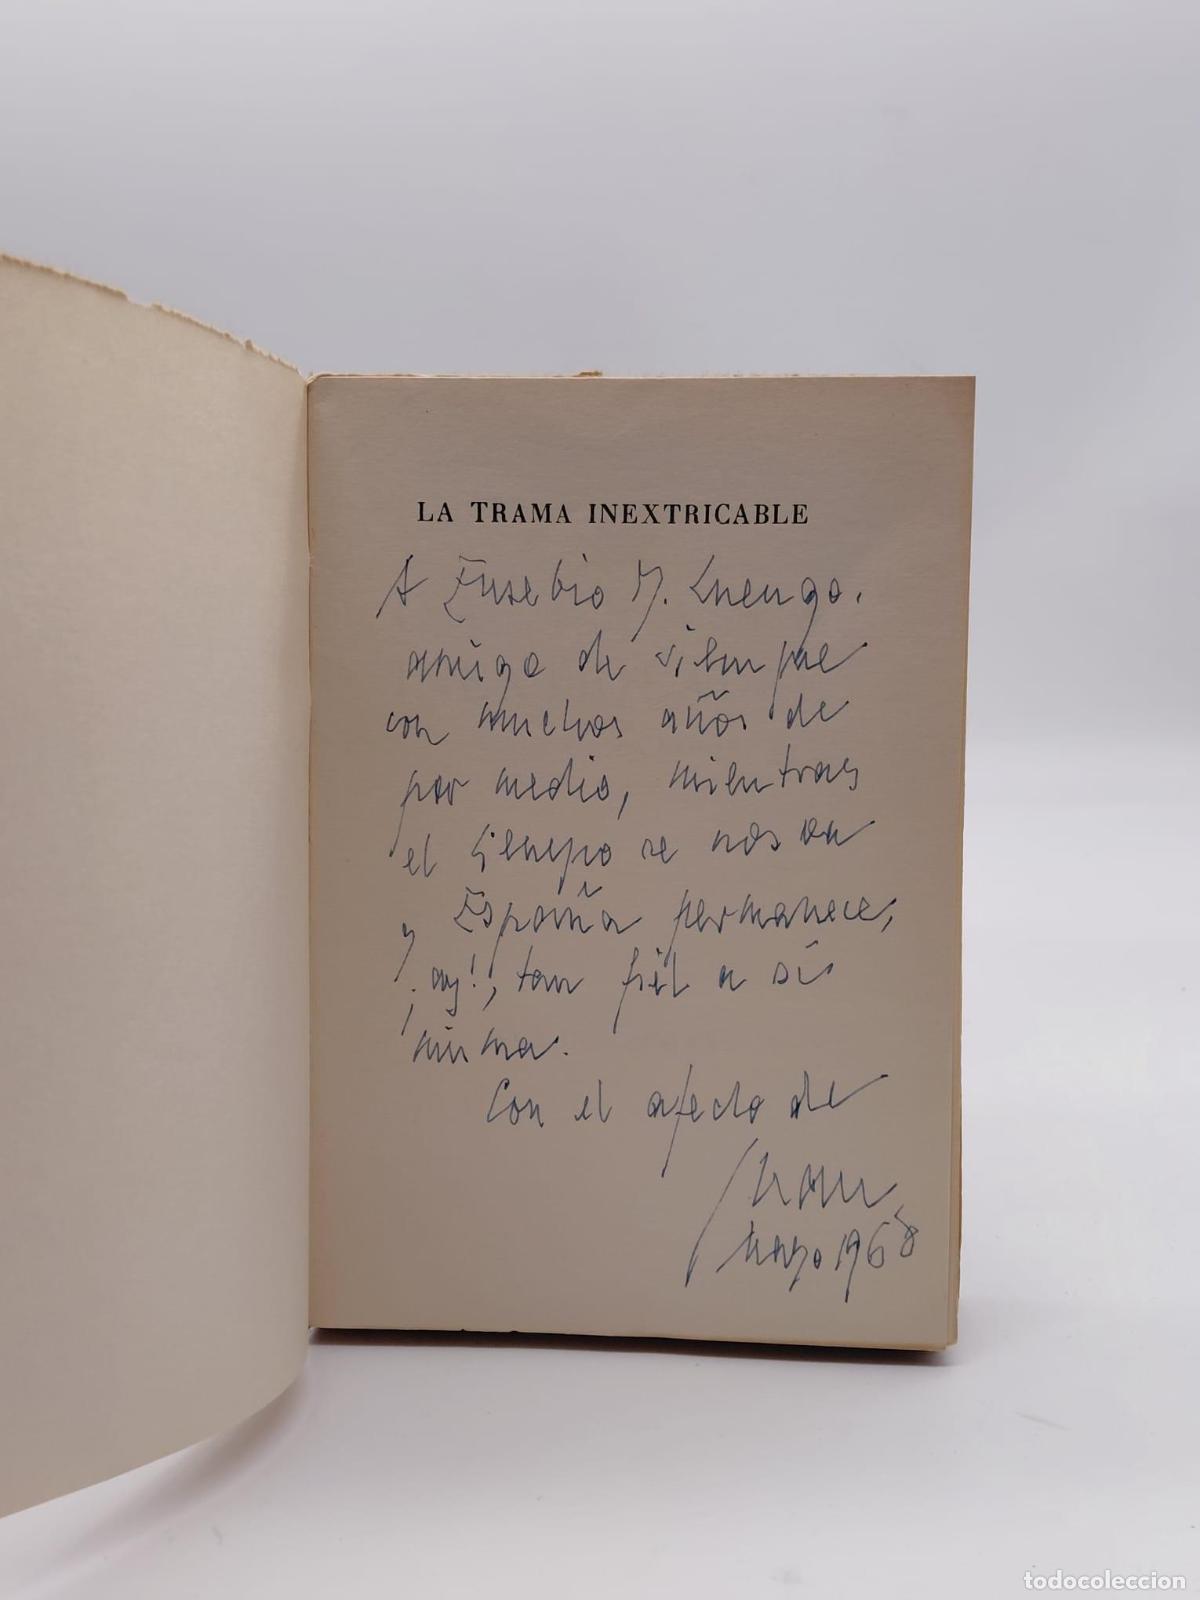 LA TRAMA INEXTRICABLE
A Eusebio G. Luengo,
amigo de siempre
con muchos años de
por medio, mientras
el tiempo se nos va
y España permanece,
¡ay!, tan fiel a sí
misma.
Con el afecto de
Mayo 1968
todocoleccion